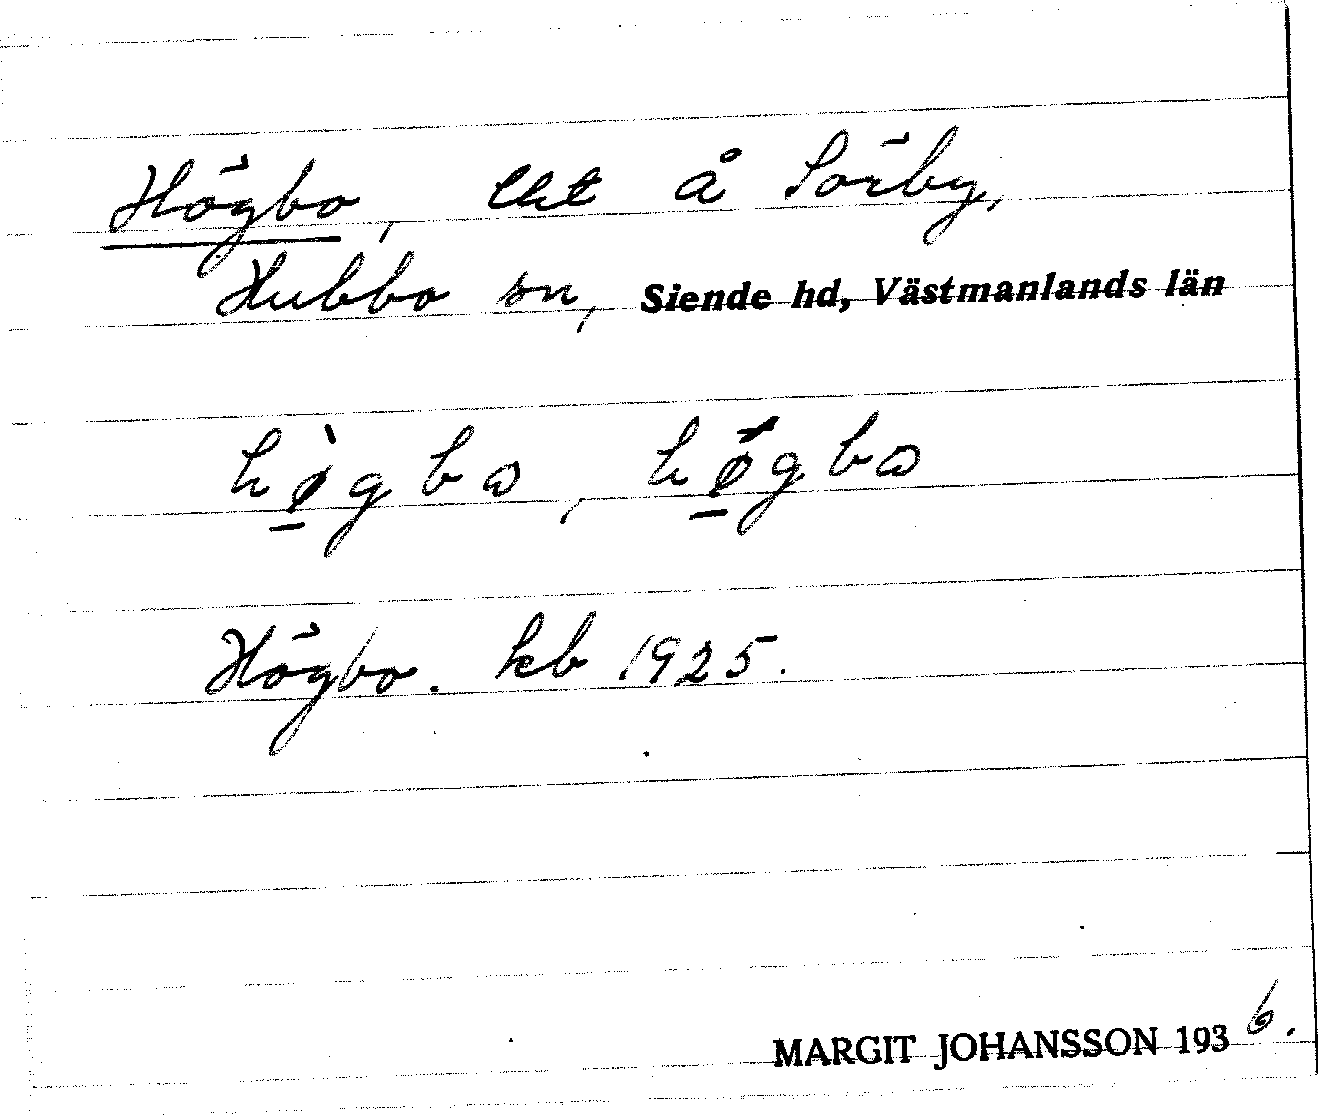 Högbo, lht å Sörby,
Hubbo sn, Siende hd, Västmanlands län
hø̀gbɷ, hǿgbɷ
Högbo. kb 1925.
MARGIT JOHANSSON 1936.